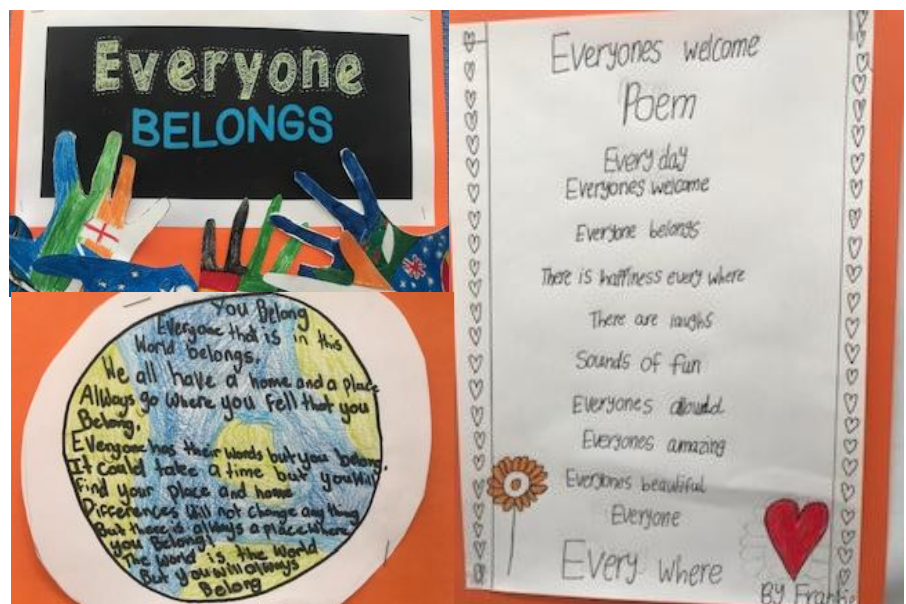 Everyone
BELONGS
You Belong
Everyone that is in this
World belongs.
We all have a home and a place
Allways go where you fell that you
Belong.
Everyone has their words but you belong.
It could take a time but you will
find your place and home
Differences will not change any thing
But there is always a place where
you Belong!
The World is the World
But you will always
Belong
Everyones welcome
Poem
Every day
Everyones welcome
Everyone belongs
There is happiness every where
There are laughs
Sounds of fun
Everyones
Everyones amazing
Everyones beautiful
Everyone
Every where
BY Frankie